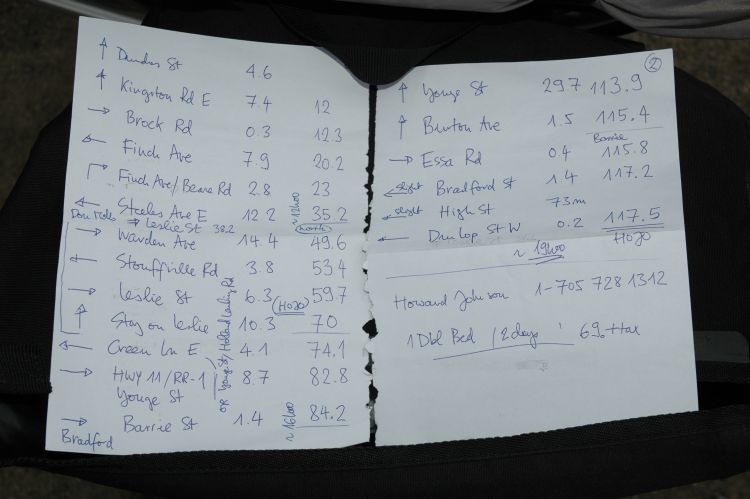 ↑ Dundas St 4.6
↑ Kingston Rd E 7.4 12
→ Brock Rd 0.3 12.3
← Finch Ave 7.9 20.2
Finch Ave/Beare Rd 2.8 23
← Steeles Ave E 12.2 35.2 ~12h00
→ Leslie St 38.2 (north)
→ Warden Ave 14.4 49.6
← Stouffville Rd 3.8 53.4
→ Leslie St 6.3 (HOJO) 59.7
↑ Stay on Leslie 10.3 70
← Green Ln E 4.1 74.1
→ HWY 11/RR-1 8.7 82.8
Yonge St
or Yonge St/Holland Landing Rd
→ Barrie St 1.4 84.2 ~16h00
Bradford
②
↑ Yonge St 29.7 113.9
↑ Burton Ave 1.5 115.4
Barrie
→ Essa Rd 0.4 115.8
← slight Bradford St 1.4 117.2
← slight High St 73m
← Dunlop St W 0.2 117.5
~19h00 HOJO
Howard Johnson 1-705 728 1312
1 Dbl Bed / 2 days 69.+tax